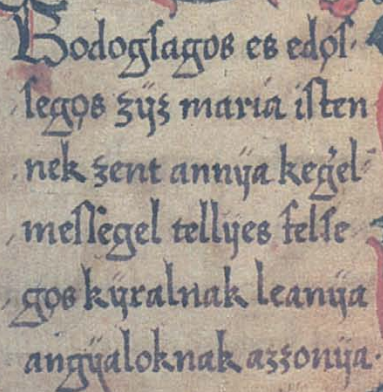 Bodogſagos es edoſ-
ſegos zÿz maria iſten
nek zent annÿa kegẏel
meſſegel tellÿes felſe
gos kÿralnak leanÿa
angÿaloknak azzonÿa